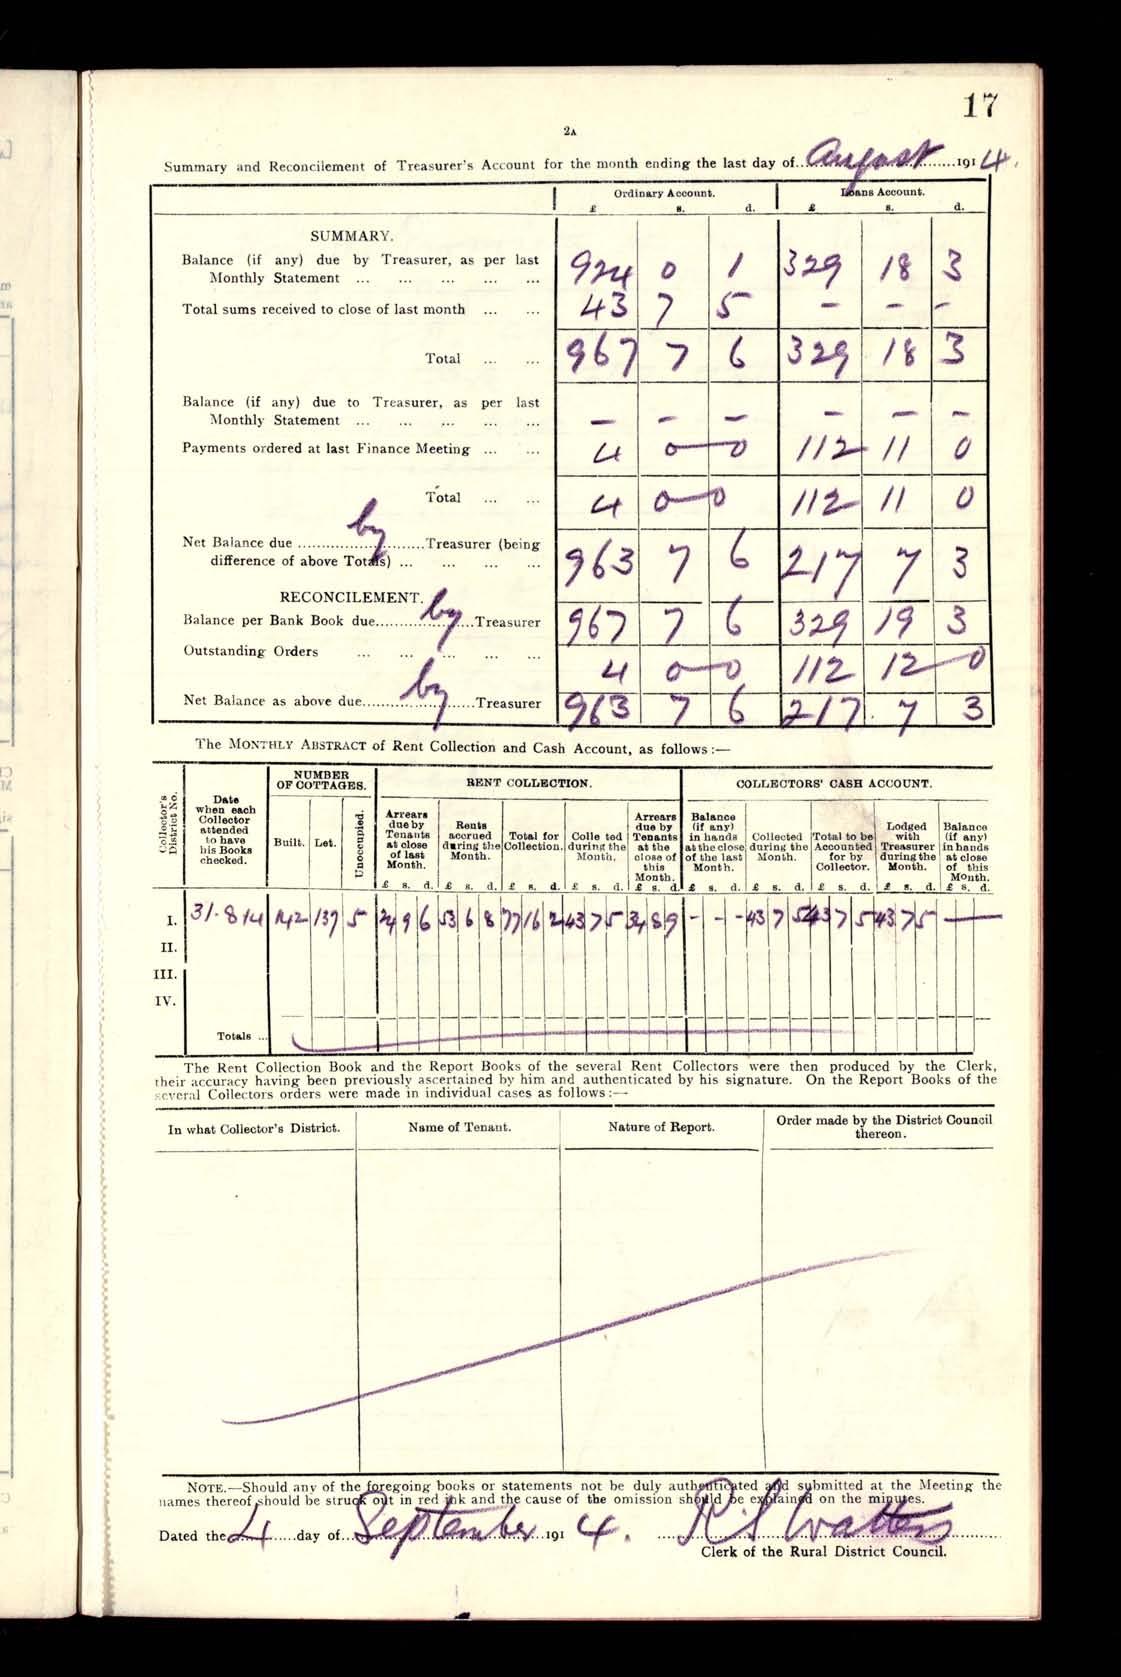 17
2A
Summary and Reconcilement of Treasurer's Account for the month ending the last day of... August ...191 4.
Ordinary Account. Loans Account.
£ s. d. £ s. d.
SUMMARY.
Balance (if any) due by Treasurer, as per last
Monthly Statement ... ... ... ... ... 924 0 1 329 18 3
Total sums received to close of last month ... ... 43 7 5 – – –
Total ... ... 967 7 6 329 18 3
Balance (if any) due to Treasurer, as per last
Monthly Statement ... ... ... ... ... – – – – – –
Payments ordered at last Finance Meeting ... ... 4 0 0 112 11 0
Total ... ... 4 0 0 112 11 0
Net Balance due ... by ... Treasurer (being
difference of above Totals) ... ... ... ... 963 7 6 217 7 3
RECONCILEMENT.
Balance per Bank Book due... by ...Treasurer 967 7 6 329 19 3
Outstanding Orders ... ... ... ... ... 4 0 0 112 12 0
Net Balance as above due... by ...Treasurer 963 7 6 217 7 3
The MONTHLY ABSTRACT of Rent Collection and Cash Account, as follows:—
Collector's District No.
Date when each Collector attended to have his Books checked.
NUMBER OF COTTAGES.
Built. Let. Unoccupied.
RENT COLLECTION.
Arrears due by Tenants at close of last Month.
Rents accrued during the Month.
Total for Collection.
Colle ted during the Month.
Arrears due by Tenants at the close of this Month.
COLLECTORS' CASH ACCOUNT.
Balance (if any) in hands at the close of the last Month.
Collected during the Month.
Total to be Accounted for by Collector.
Lodged with Treasurer during the Month.
Balance (if any) in hands at close of this Month.
£ s. d. £ s. d. £ s. d. £ s. d. £ s. d. £ s. d. £ s. d. £ s. d. £ s. d. £ s. d.
I. 31.8 14 142 137 5 24 9 6 53 6 8 77 16 2 43 7 5 34 8 9 – – – 43 7 5 43 7 5 43 7 5 —
II.
III.
IV.
Totals ...
The Rent Collection Book and the Report Books of the several Rent Collectors were then produced by the Clerk,
their accuracy having been previously ascertained by him and authenticated by his signature. On the Report Books of the
several Collectors orders were made in individual cases as follows:—
In what Collector's District. Name of Tenant. Nature of Report. Order made by the District Council thereon.
NOTE.—Should any of the foregoing books or statements not be duly authenticated and submitted at the Meeting the
names thereof should be struck out in red ink and the cause of the omission should be explained on the minutes.
Dated the 4 ...day of... September ...191 4. R S Watters
Clerk of the Rural District Council.